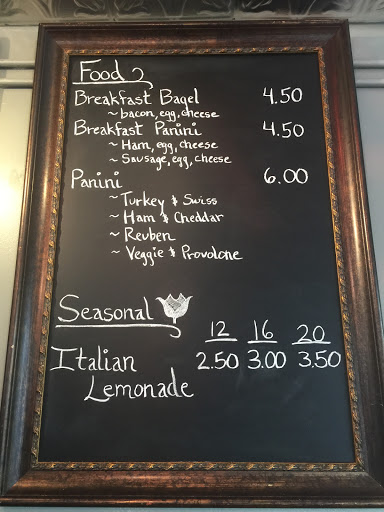 Food
Breakfast Bagel 4.50
~ bacon, egg, cheese
Breakfast Panini 4.50
~ Ham, egg, cheese
~ Sausage, egg, cheese
Panini 6.00
~ Turkey & Swiss
~ Ham & Cheddar
~ Reuben
~ Veggie & Provolone
Seasonal
12 16 20
Italian 2.50 3.00 3.50
Lemonade